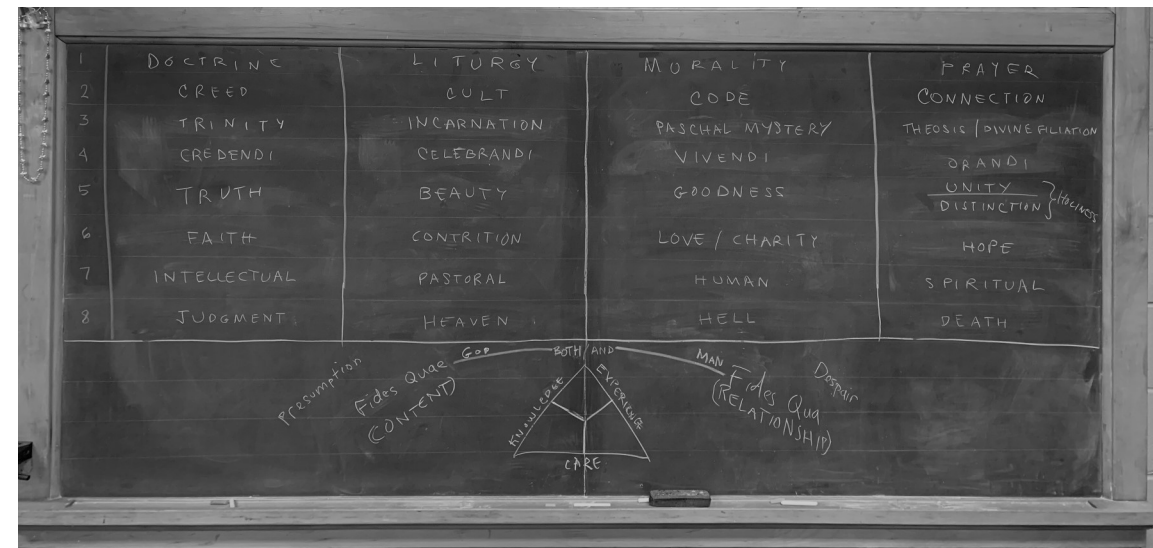 1 DOCTRINE LITURGY MORALITY PRAYER
2 CREED CULT CODE CONNECTION
3 TRINITY INCARNATION PASCHAL MYSTERY THEOSIS / DIVINE FILIATION
4 CREDENDI CELEBRANDI VIVENDI ORANDI
5 TRUTH BEAUTY GOODNESS UNITY
DISTINCTION HOLINESS
6 FAITH CONTRITION LOVE / CHARITY HOPE
7 INTELLECTUAL PASTORAL HUMAN SPIRITUAL
8 JUDGMENT HEAVEN HELL DEATH
GOD BOTH/AND MAN
Presumption Fides Quae Fides Qua Despair
(CONTENT) (RELATIONSHIP)
KNOWLEDGE EXPERIENCE
CARE